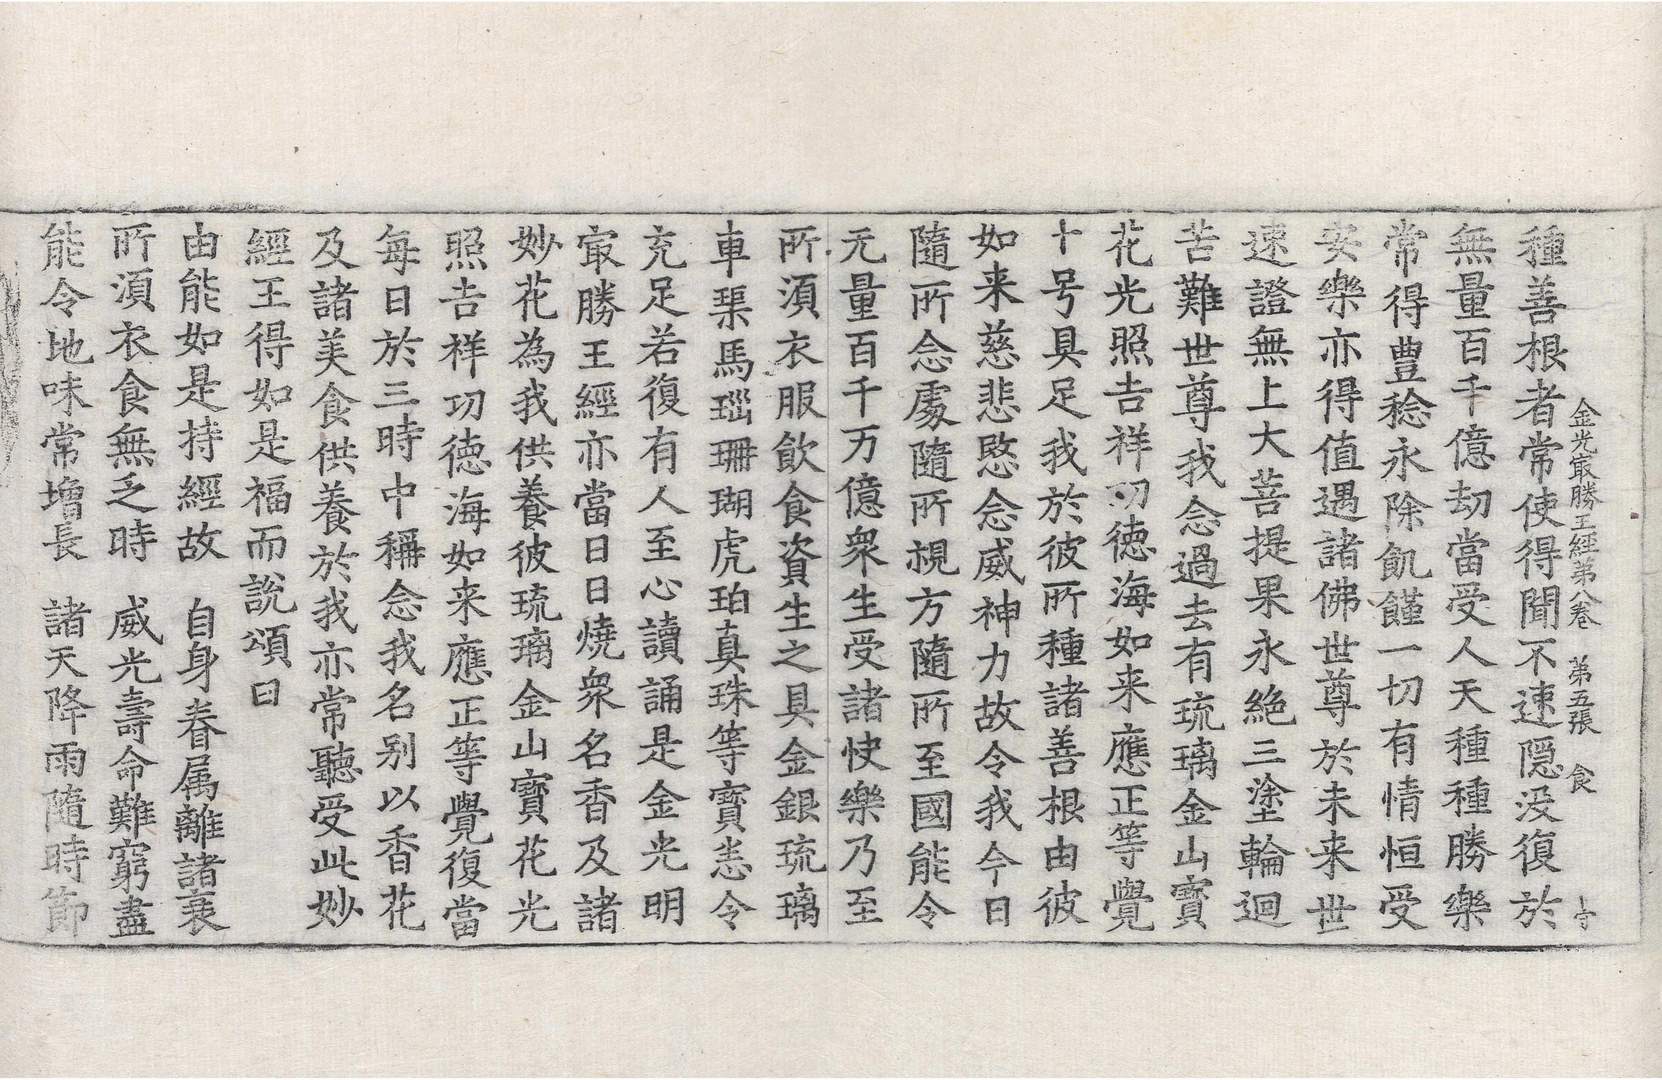 金光㝡勝王經第八卷　第五張　食
種善根者常使得聞不速隐没復於
無量百千億劫當受人天種種勝樂
常得豊稔永除飢饉一切有情恒受
安樂亦得值遇諸佛世尊於未来世
速證無上大菩提果永絶三塗輪迴
苦難世尊我念過去有琉璃金山寳
花光照吉祥㓛德海如来應正等覺
十号具足我於彼所種諸善根由彼
如来慈悲愍念威神力故令我今日
隨所念處隨所視方隨所至國能令
无量百千万億衆生受諸快樂乃至
所湏衣服飲食資生之具金銀琉璃
車渠馬瑙珊瑚虎珀真珠等寳悉令
充足若復有人至心讀誦是金光明
㝡勝王經亦當日日燒衆名香及諸
妙花為我供養彼琉璃金山寳花光
照吉祥㓛德海如来應正等覺復當
每日於三時中稱念我名别以香花
及諸美食供養於我亦常聽受此妙
經王得如是福而說頌曰
由能如是持經故　自身眷属離諸衰
所湏衣食無乏時　威光壽命難窮盡
能令地味常增長　諸天降雨隨時節